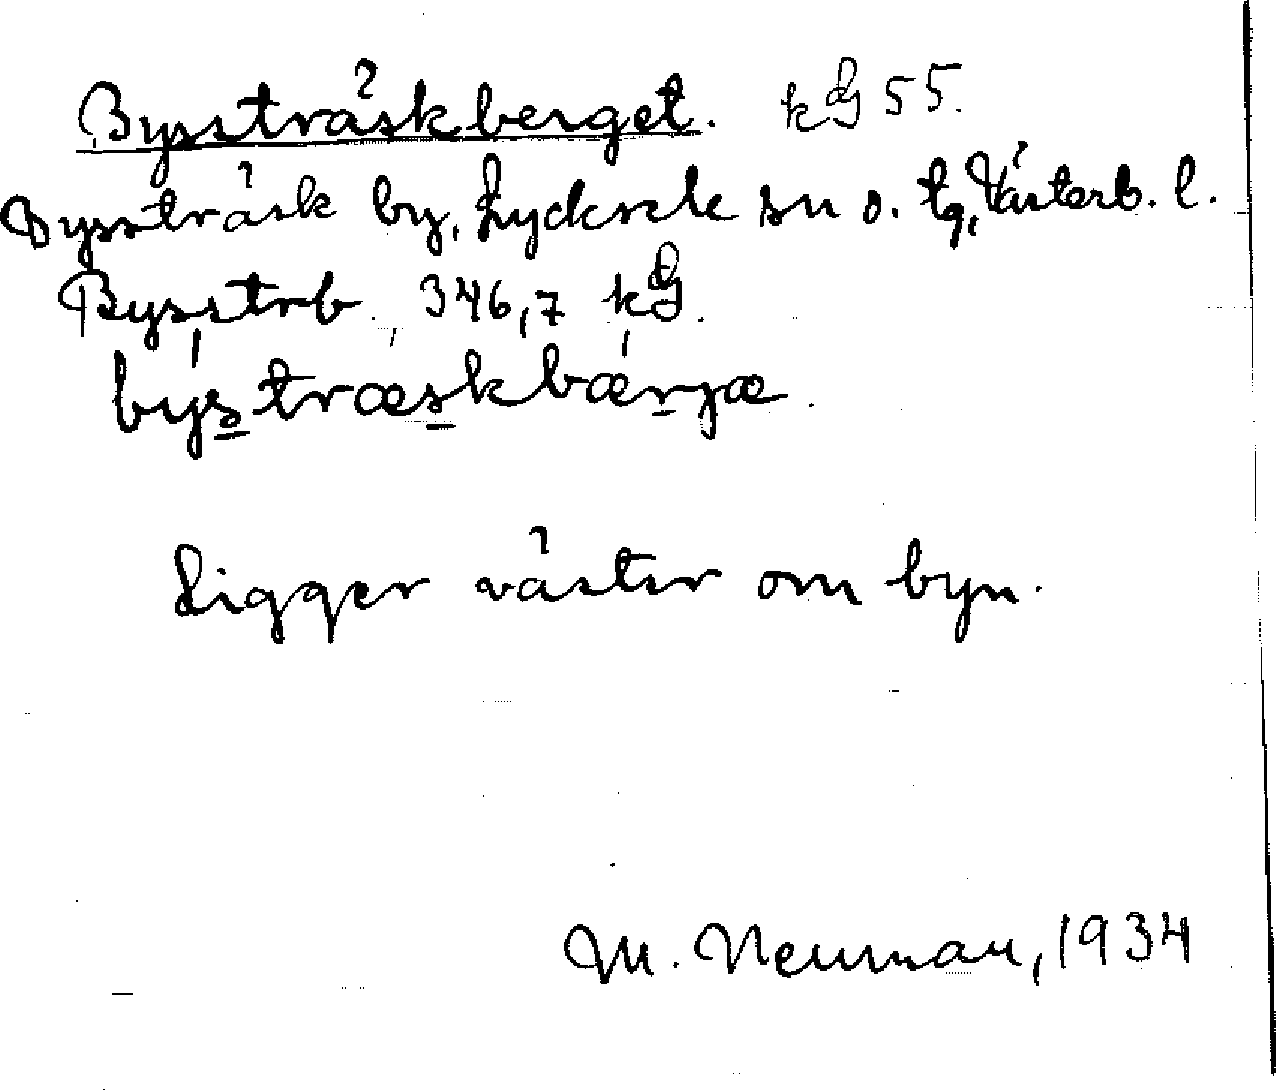 Bysstråskberget. kG 55.
Bysstråsk by, Lycksele sn o. tg, Västerb. l.
Bysstrb. 346,7 kG.
býstræskbærjæ.
Ligger väster om byn.
M. Neuman, 1934